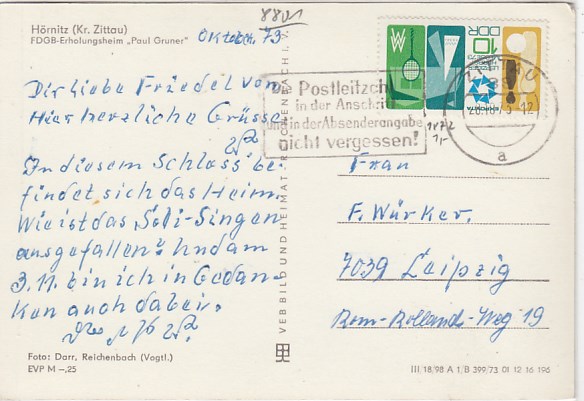 Hörnitz (Kr. Zittau)
FDGB-Erholungsheim „Paul Gruner"
8801
Oktober 73
Dir liebe Friedel von
Hier herzliche Grüsse
In diesem Schloss be-
findet sich das Heim.
Wie ist das Soli-Singen
ausgefallen? Und am
3.11. bin ich in Gedan-
ken auch dabei.
Foto: Darr, Reichenbach (Vogtl.)
EVP M –,25
VEB BILD UND HEIMAT REICHENBACH I. V.
Die Postleitzahl
in der Anschrift
und in der Absenderangabe
nicht vergessen!
10
DDR
a
Frau
F. Würker.
7039 Leipzig
Rom.-Rollands-Weg 19
III/18/98 A 1/B 399/73 01 12 16 196